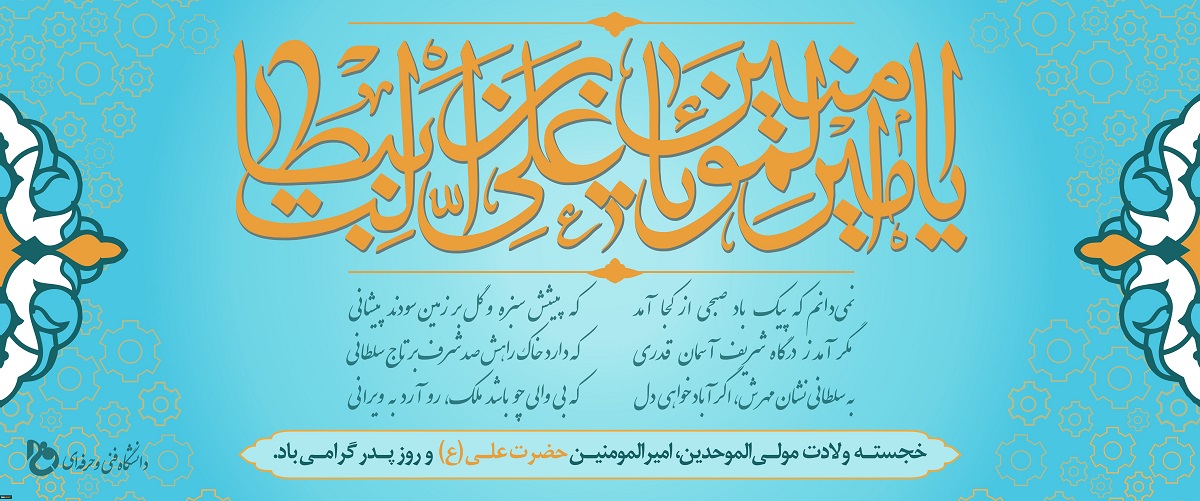 یا امیرالمومنین یا علی بن ابیطالب
نمی‌دانم که پیک باد صبحی از کجا آمد    که پیشش سبزه و گل بر زمین سودند پیشانی
مگر آمد ز درگاه شریف آسمان قدری    که دارد خاک راهش صد شرف بر تاج سلطانی
به سلطانی نشان مهرش، اگر آباد خواهی دل    که بی والی چو باشد ملک، رو آرد به ویرانی
خجسته ولادت مولی‌الموحدین، امیرالمومنین حضرت علی (ع) و روز پدر گرامی باد.
دانشگاه فنی و حرفه‌ای